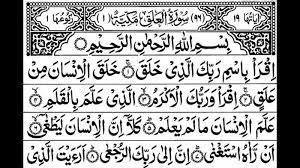 اٰیَاتُهَا ۱۹ (۹۶) سُوْرَةُ الْعَلَقِ مَكِّيَّةٌ (۱) رُكُوْعُهَا ۱
بِسْمِ اللّٰهِ الرَّحْمٰنِ الرَّحِیْمِ
اِقْرَاْ بِاسْمِ رَبِّكَ الَّذِیْ خَلَقَ ۝ خَلَقَ الْاِنْسَانَ مِنْ
عَلَقٍ ۝ اِقْرَاْ وَرَبُّكَ الْاَكْرَمُ ۝ الَّذِیْ عَلَّمَ بِالْقَلَمِ ۝
عَلَّمَ الْاِنْسَانَ مَا لَمْ یَعْلَمْ ۝ كَلَّاۤ اِنَّ الْاِنْسَانَ لَیَطْغٰۤی ۝
اَنْ رَّاٰهُ اسْتَغْنٰی ۝ اِنَّ اِلٰی رَبِّكَ الرُّجْعٰی ۝ اَرَءَیْتَ الَّذِیْ